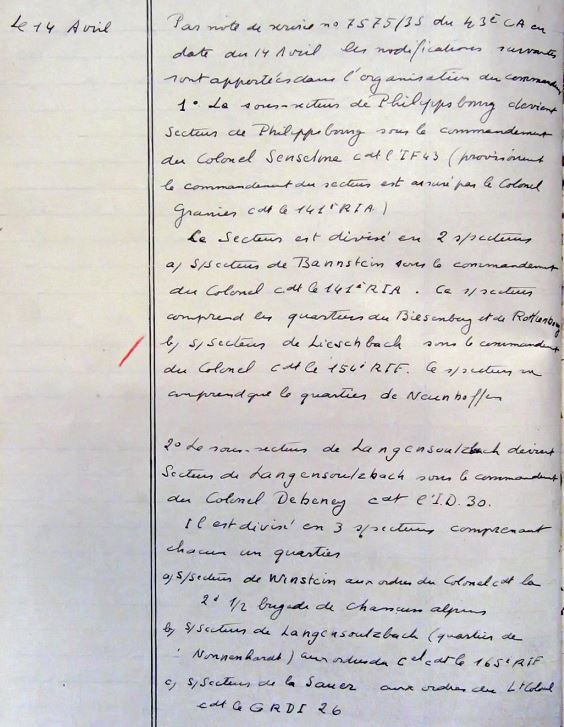 Le 14 Avril
Par note de service no 7575/3S du 43è CA en
date du 14 Avril les modifications suivantes
sont apportées dans l'organisation du commandem
1° Le sous-secteur de Philippsbourg devient
Secteur de Philippsbourg sous le commandement
du Colonel cdt l'IF43 (provisoirement
le commandement du secteur est assuré par le Colonel
Granier cdt le 141è RIA)
Le Secteur est divisé en 2 s/secteurs
a) S/Secteur de Bannstein sous le commandement
du Colonel cdt le 141è RIA. Ce s/secteur
comprend les quartiers du Biesenberg et de Rothenberg
b) S/Secteur de Lieschbach sous le commandement
du Colonel cdt le 154è RIF. Ce s/secteur ne
comprend que le quartier de Neunhoffen
2° Le sous-secteur de Langensoultzbach devient
Secteur de Langensoultzbach sous le commandement
du Colonel Debeney cdt l'I.D. 30.
Il est divisé en 3 s/secteurs comprenant
chacun un quartier
a) S/Secteur de Winstein aux ordres du Colonel cdt la
2è 1/2 brigade de chasseurs alpins
b) S/Secteur de Langensoultzbach (quartier de
Nonnenhardt) aux ordres du Cel cdt le 165è RIF
c) S/Secteur de la Sauer aux ordres du Lt Colonel
cdt le GRDI 26